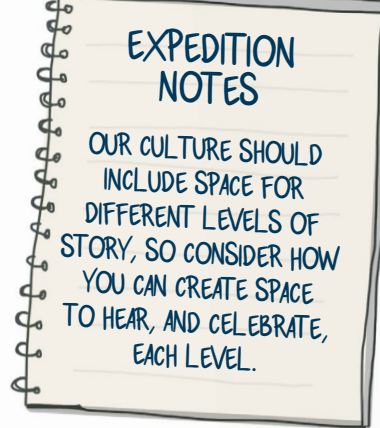 EXPEDITION
NOTES
OUR CULTURE SHOULD
INCLUDE SPACE FOR
DIFFERENT LEVELS OF
STORY, SO CONSIDER HOW
YOU CAN CREATE SPACE
TO HEAR, AND CELEBRATE,
EACH LEVEL.